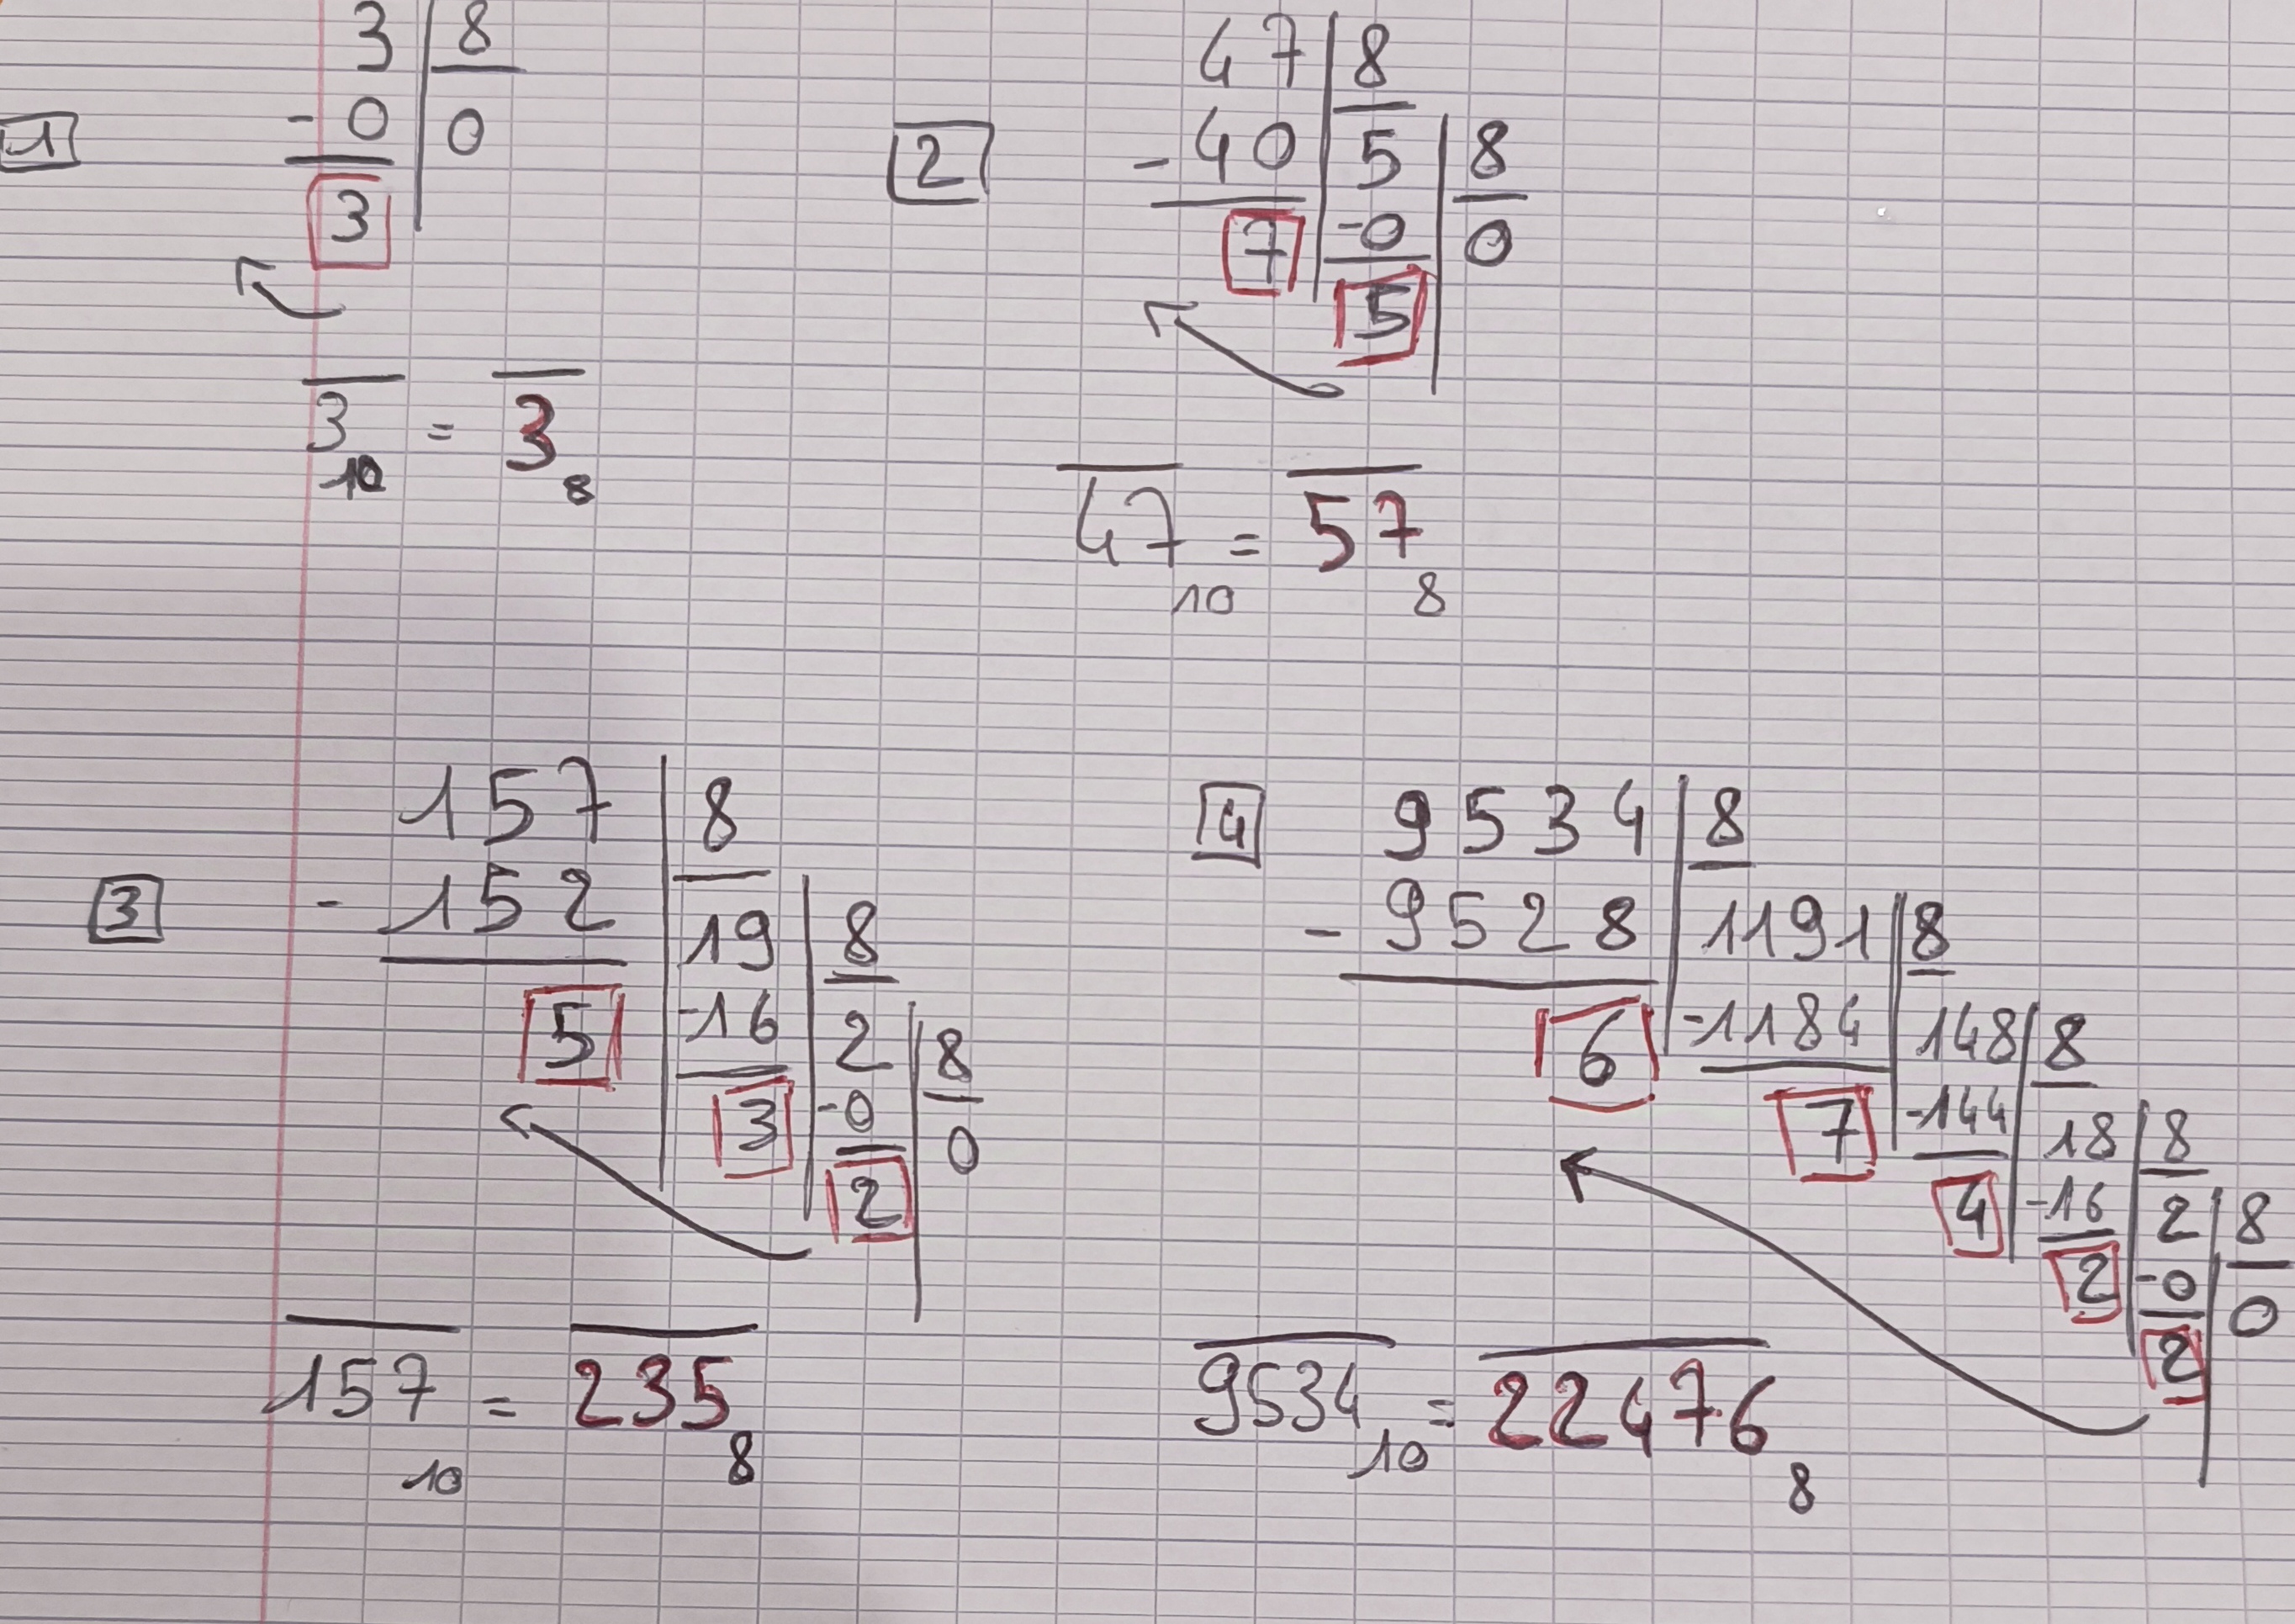 3 | 8
1 - 0 | 0
3
3 10 = 3 8
47 | 8
2 - 40 | 5 | 8
7 | -0 | 0
5
47 10 = 57 8
157 | 8
3 - 152 | 19 | 8
5 | -16 | 2 | 8
3 | -0 | 0
2
157 10 = 235 8
4 9534 | 8
- 9528 | 1191 | 8
6 | -1184 | 148 | 8
7 | -144 | 18 | 8
4 | -16 | 2 | 8
2 | -0 | 0
2
9534 10 = 22476 8